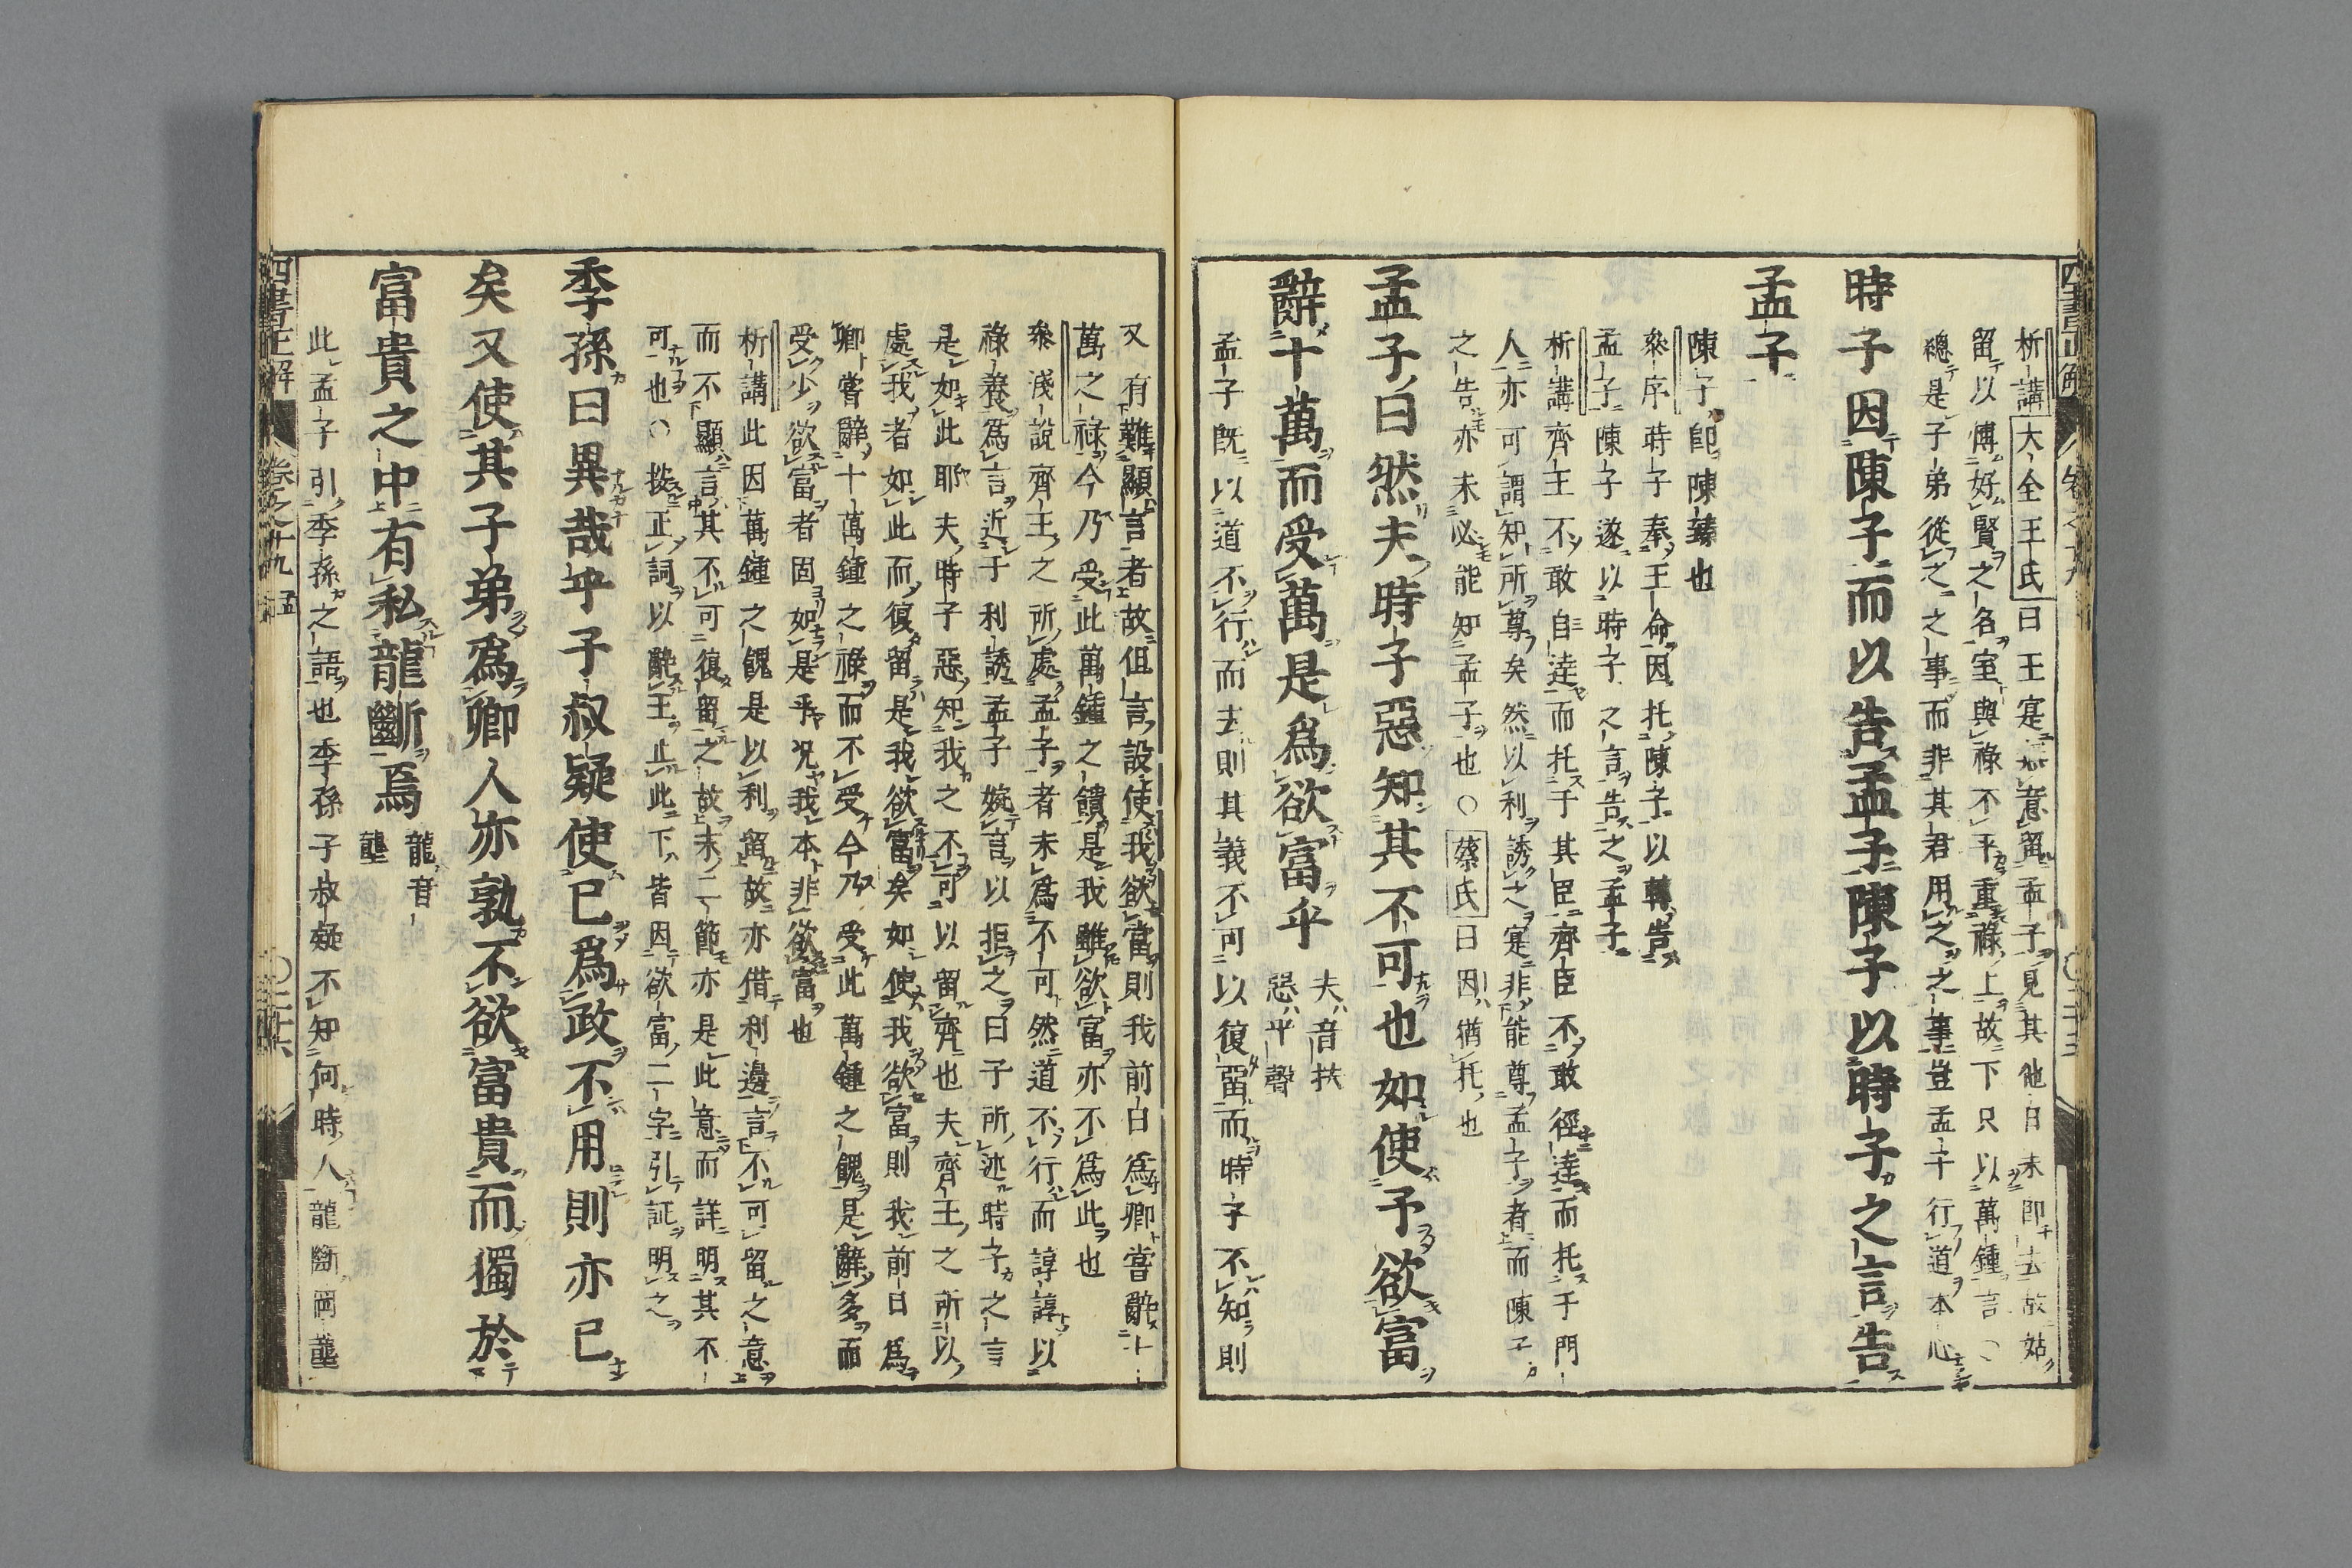 析講大全王氏曰王寔無意留孟子見其他日未即去故姑
留以傅好賢之名室與祿不平重祿上故下只以萬鍾言○
總是子弟從之之事而非其君用之之事豈孟子行道本心
時子因陳子而以告孟子陳子以時子之言告
孟子
陳子卽陳臻也
叅序時子奉王命因托陳子以轉告
孟子陳子遂以時子之言告之孟子
析講齊王不敢自達而托于其臣齊臣不敢徑達而托于門
人亦可謂知所尊矣然以利誘之寔非能尊孟子者而陳子
之告亦未必能知孟子也○蔡氏曰因猶托也
孟子曰然夫時子惡知其不可也如使予欲富
辭十萬而受萬是爲欲富乎
夫音扶
惡平聲
孟子旣以道不行而去則其義不可以復留而時子不知則
又有難顯言者故但言設使我欲富則我前日爲卿嘗辭十
萬之祿今乃受此萬鍾之饋是我雖欲富亦不爲此也
叅淺說齊王之所處孟子者未爲不可然道不行而諄諄以
祿養爲言近于利誘孟子婉言以拒之曰子所述時子之言
是如此耶夫時子惡知我之不可以留齊也夫齊王之所以
處我者如此而復留是我欲富矣如使我欲富則我前日爲
卿嘗辭十萬鍾之祿而不受今乃受此萬鍾之餽是辭多而
受少欲富者固如是乎况我本非欲富也
析講此因萬鍾之餽是以利留故亦借利邊言不可留之意
而不顯言其不可復留之故末二節亦是此意而詳明其不
可也○拠正詞以辭王止此下皆因欲富二字引証明之
季孫曰異哉子叔疑使已爲政不用則亦已
矣又使其子弟爲卿人亦孰不欲富貴而獨於
富貴之中有私龍斷焉
龍音
壟
此孟子引季孫之語也季孫子叔疑不知何時人龍斷岡壟
四書正解
卷之十九
孟